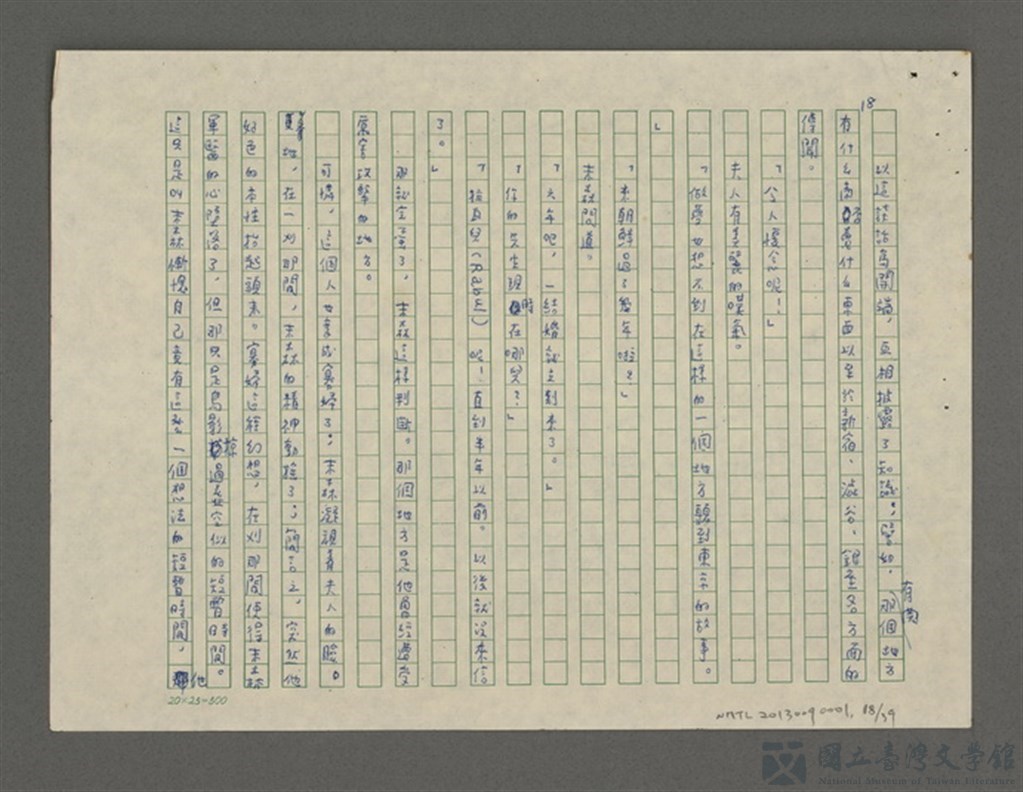 18
以這種話為開端，互相披露了知識；譬如，那個地方
有商
有什么商賣什么東西以至於新宿、澁谷、銀座各方面的
傳聞。
「令人懷念呢！」
夫人有美麗的嘆氣。
「做夢也想不到在這樣的一個地方聽到東京的故事。
」
「來朝鮮過了幾年啦？」
末森問道。
「六年吧，一結婚就立刻來了。」
「你的先生現時在哪兒？」
「拉包兒(Rabul)呢！直到半年以前。以後就沒來信
了。」
那就完蛋了，末森這樣判斷。那個地方是他曾經遭受
寫害攻擊的地方。
可憐，這個人也要成寡婦了；末森凝視着夫人的臉。
地，在一刈那間，末森的精神動搖了；簡言之，突然他
好色的本性抬起頭來。寡婦這種幻想，在刈那間使得末森
軍醫的心墮落了，但那只是鳥影掠過虛空似的短暫時間。
這只是叫末森慚愧自己竟有這麼一個想法的短暫時間，他
20×25=500
NMTL 20130090001, 18/39
國立臺灣文學館
National Museum of Taiwan Literature